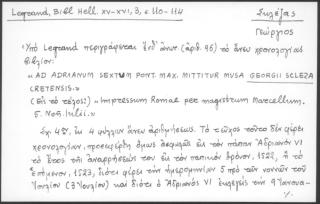 Legrand, Bibl. Hell. XV-XVI, 3, σ. 110-114
Σκλέζας
Γεώργιος
Ὑπὸ Legrand περιγράφεται ἔνθ' ἄνωτ. (ἀριθ. 95) τὸ ἄνευ χρονολογίας
βιβλίον:
"AD ADRIANUM SEXTUM PONT. MAX. MITTITUR MUSA GEORGII SCLEZA
CRETENSIS."
(Εἰς τὸ τέλος:) "Impressum Romae per magistrum Marcellum.
5. Non. Iulii."
Σχ. 4ον, ἐκ 4 φύλλων ἄνευ ἀριθμήσεως. Τὸ τεῦχος τοῦτο δὲν φέρει
χρονολογίαν, προσεφέρθη ὅμως ἀκριβῶς εἰς τὸν πάπαν Ἀδριανὸν VI
τὸ ἔτος τῆς ἀναρρήσεώς του εἰς τὸν παπικὸν θρόνον, 1522, ἢ τὸ
ἑπόμενον, 1523, διότι φέρει τὴν ἡμερομηνίαν 5 πρὸ τῶν νοννῶν τοῦ
Ἰουλίου (3 Ἰουλίου) καὶ διότι ὁ Ἀδριανὸς VI ἐξελέγη τὴν 9 Ἰανουα-